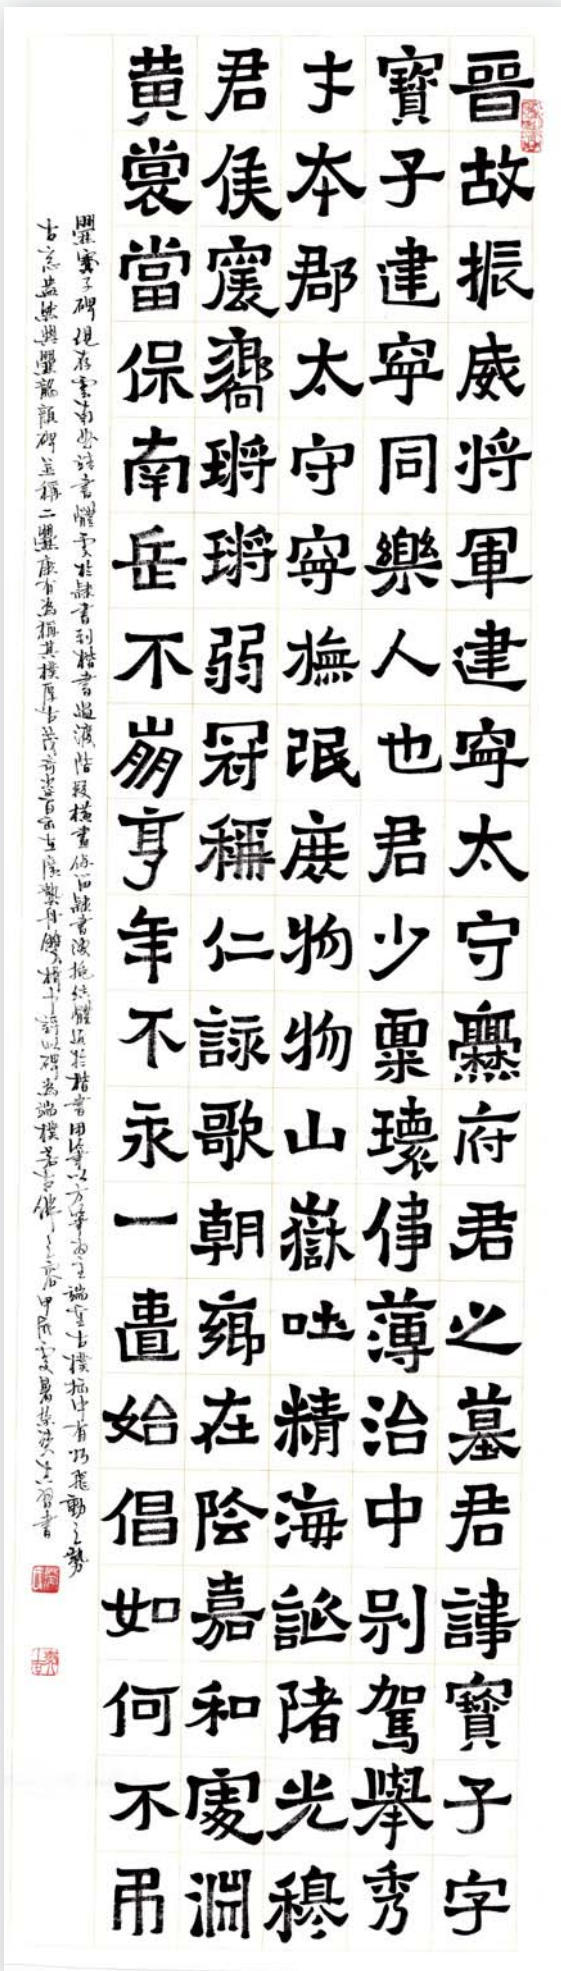 晉故振威将軍建寧太守爨府君之墓君諱寶子字
寶子建寧同樂人也君少稟瓌偉薄治中别駕舉秀
才本郡太守寧撫氓庶物物山嶽吐精海誕陼光穆
君侯震嚮鏘鏘弱冠稱仁詠歌朝鄉在陰嘉和處淵
黄裳當保南岳不崩享年不永一匱始倡如何不弔
爨寶子碑現存雲南曲靖書體處於隸書到楷書過渡階段橫畫保留隸書波挑結體近於楷書用筆以方筆為主端莊古樸拙中有巧飛動之勢
古意盎然與爨龍顏碑並稱二爨康有為稱其樸厚古茂奇姿百出在廣藝舟雙楫中評此碑為端樸若古佛之容甲辰處暑習書